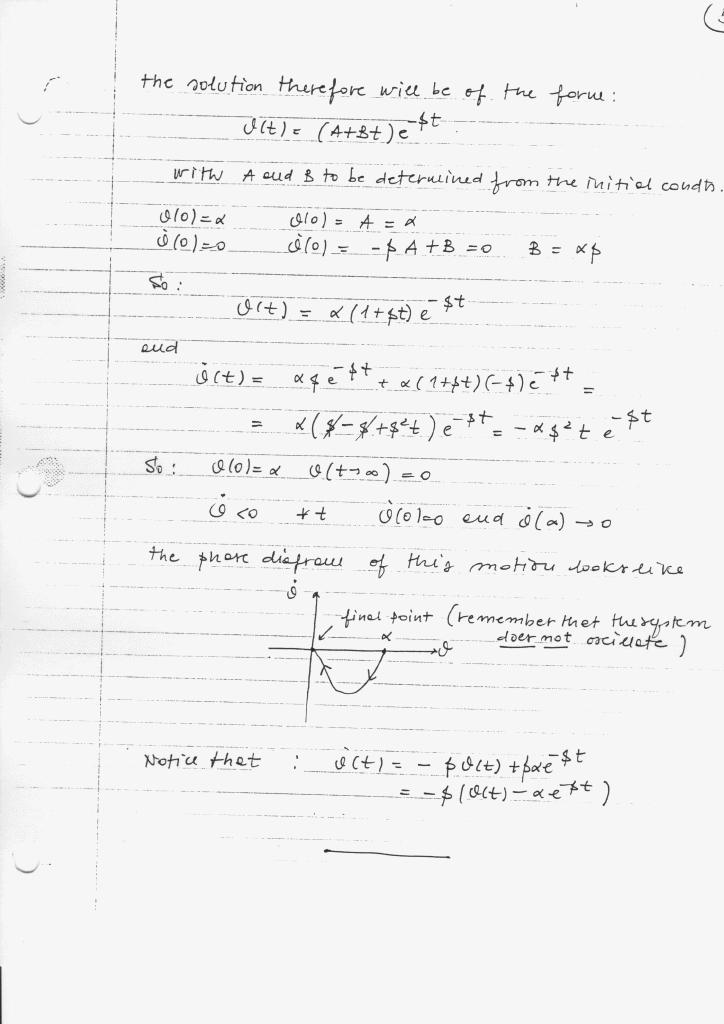 (5
the solution therefore will be of the form:
ϑ(t) = (A+Bt) e^-βt
with A and B to be determined from the initial condts.
ϑ(0)=α ϑ(0) = A = α
ϑ̇(0)=0 ϑ̇(0) = -βA + B = 0 B = αβ
So :
ϑ(t) = α(1+βt) e^-βt
and
ϑ̇(t) = αβ e^-βt + α(1+βt)(-β) e^-βt =
= α(β-β+β²t) e^-βt = -αβ² t e^-βt
So : ϑ(0)=α ϑ(t→∞) = 0
ϑ̇ <0 ∀t ϑ̇(0)=0 and ϑ̇(∞) → 0
the phase diagram of this motion looks like
ϑ̇
final point (remember that the system
α ϑ does not oscillate)
Notice that : ϑ̇(t) = - βϑ(t) + βαe^-βt
= -β(ϑ(t) - αe^-βt)